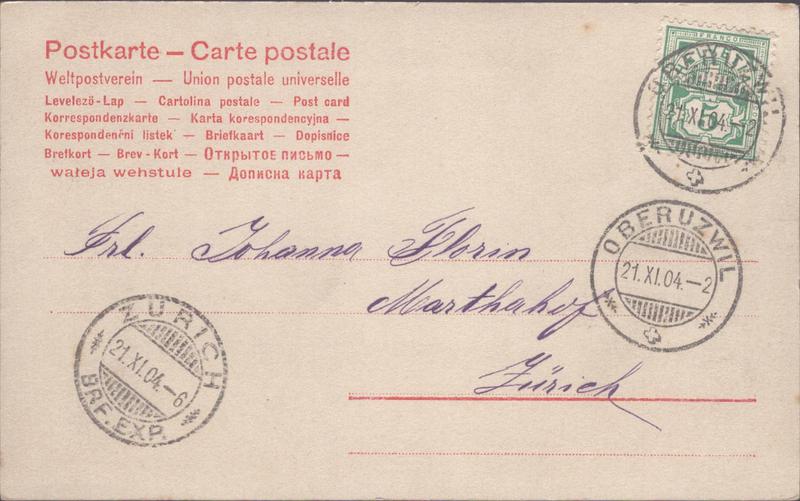 Postkarte — Carte postale
Weltpostverein — Union postale universelle
Levelező-Lap — Cartolina postale — Post card
Korrespondenzkarte — Karta korespondencyjna —
Korespondenční listek — Briefkaart — Dopisnice
Brefkort — Brev-Kort — Открытое письмо —
wałeja wehstule — Дописна карта
FRANCO
5
21.XI.04.–2
OBERUZWIL
21.XI.04.–2
Frl. Johanna Florin
Marthahof
Zürich
ZÜRICH
21.XI.04.–6
BRF. EXP.